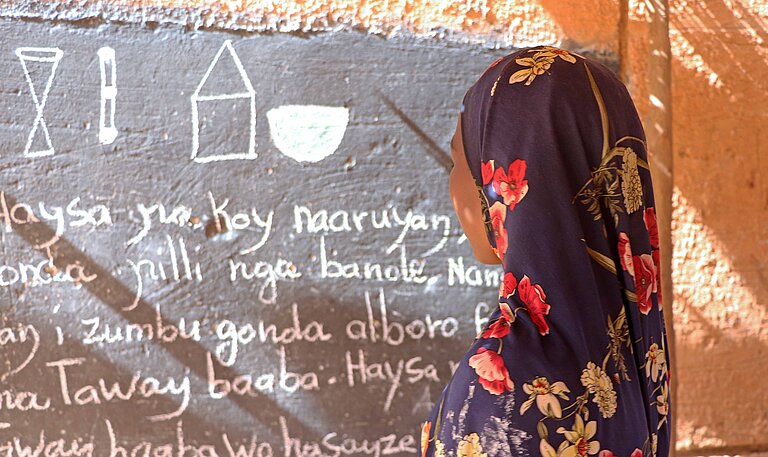 Haysa na koy naaruyan,
gonda pilli nga banda, Nan
i zumbu gonda alboro f
na Taway baaba. Haysa
Taway baaba wo hasayze